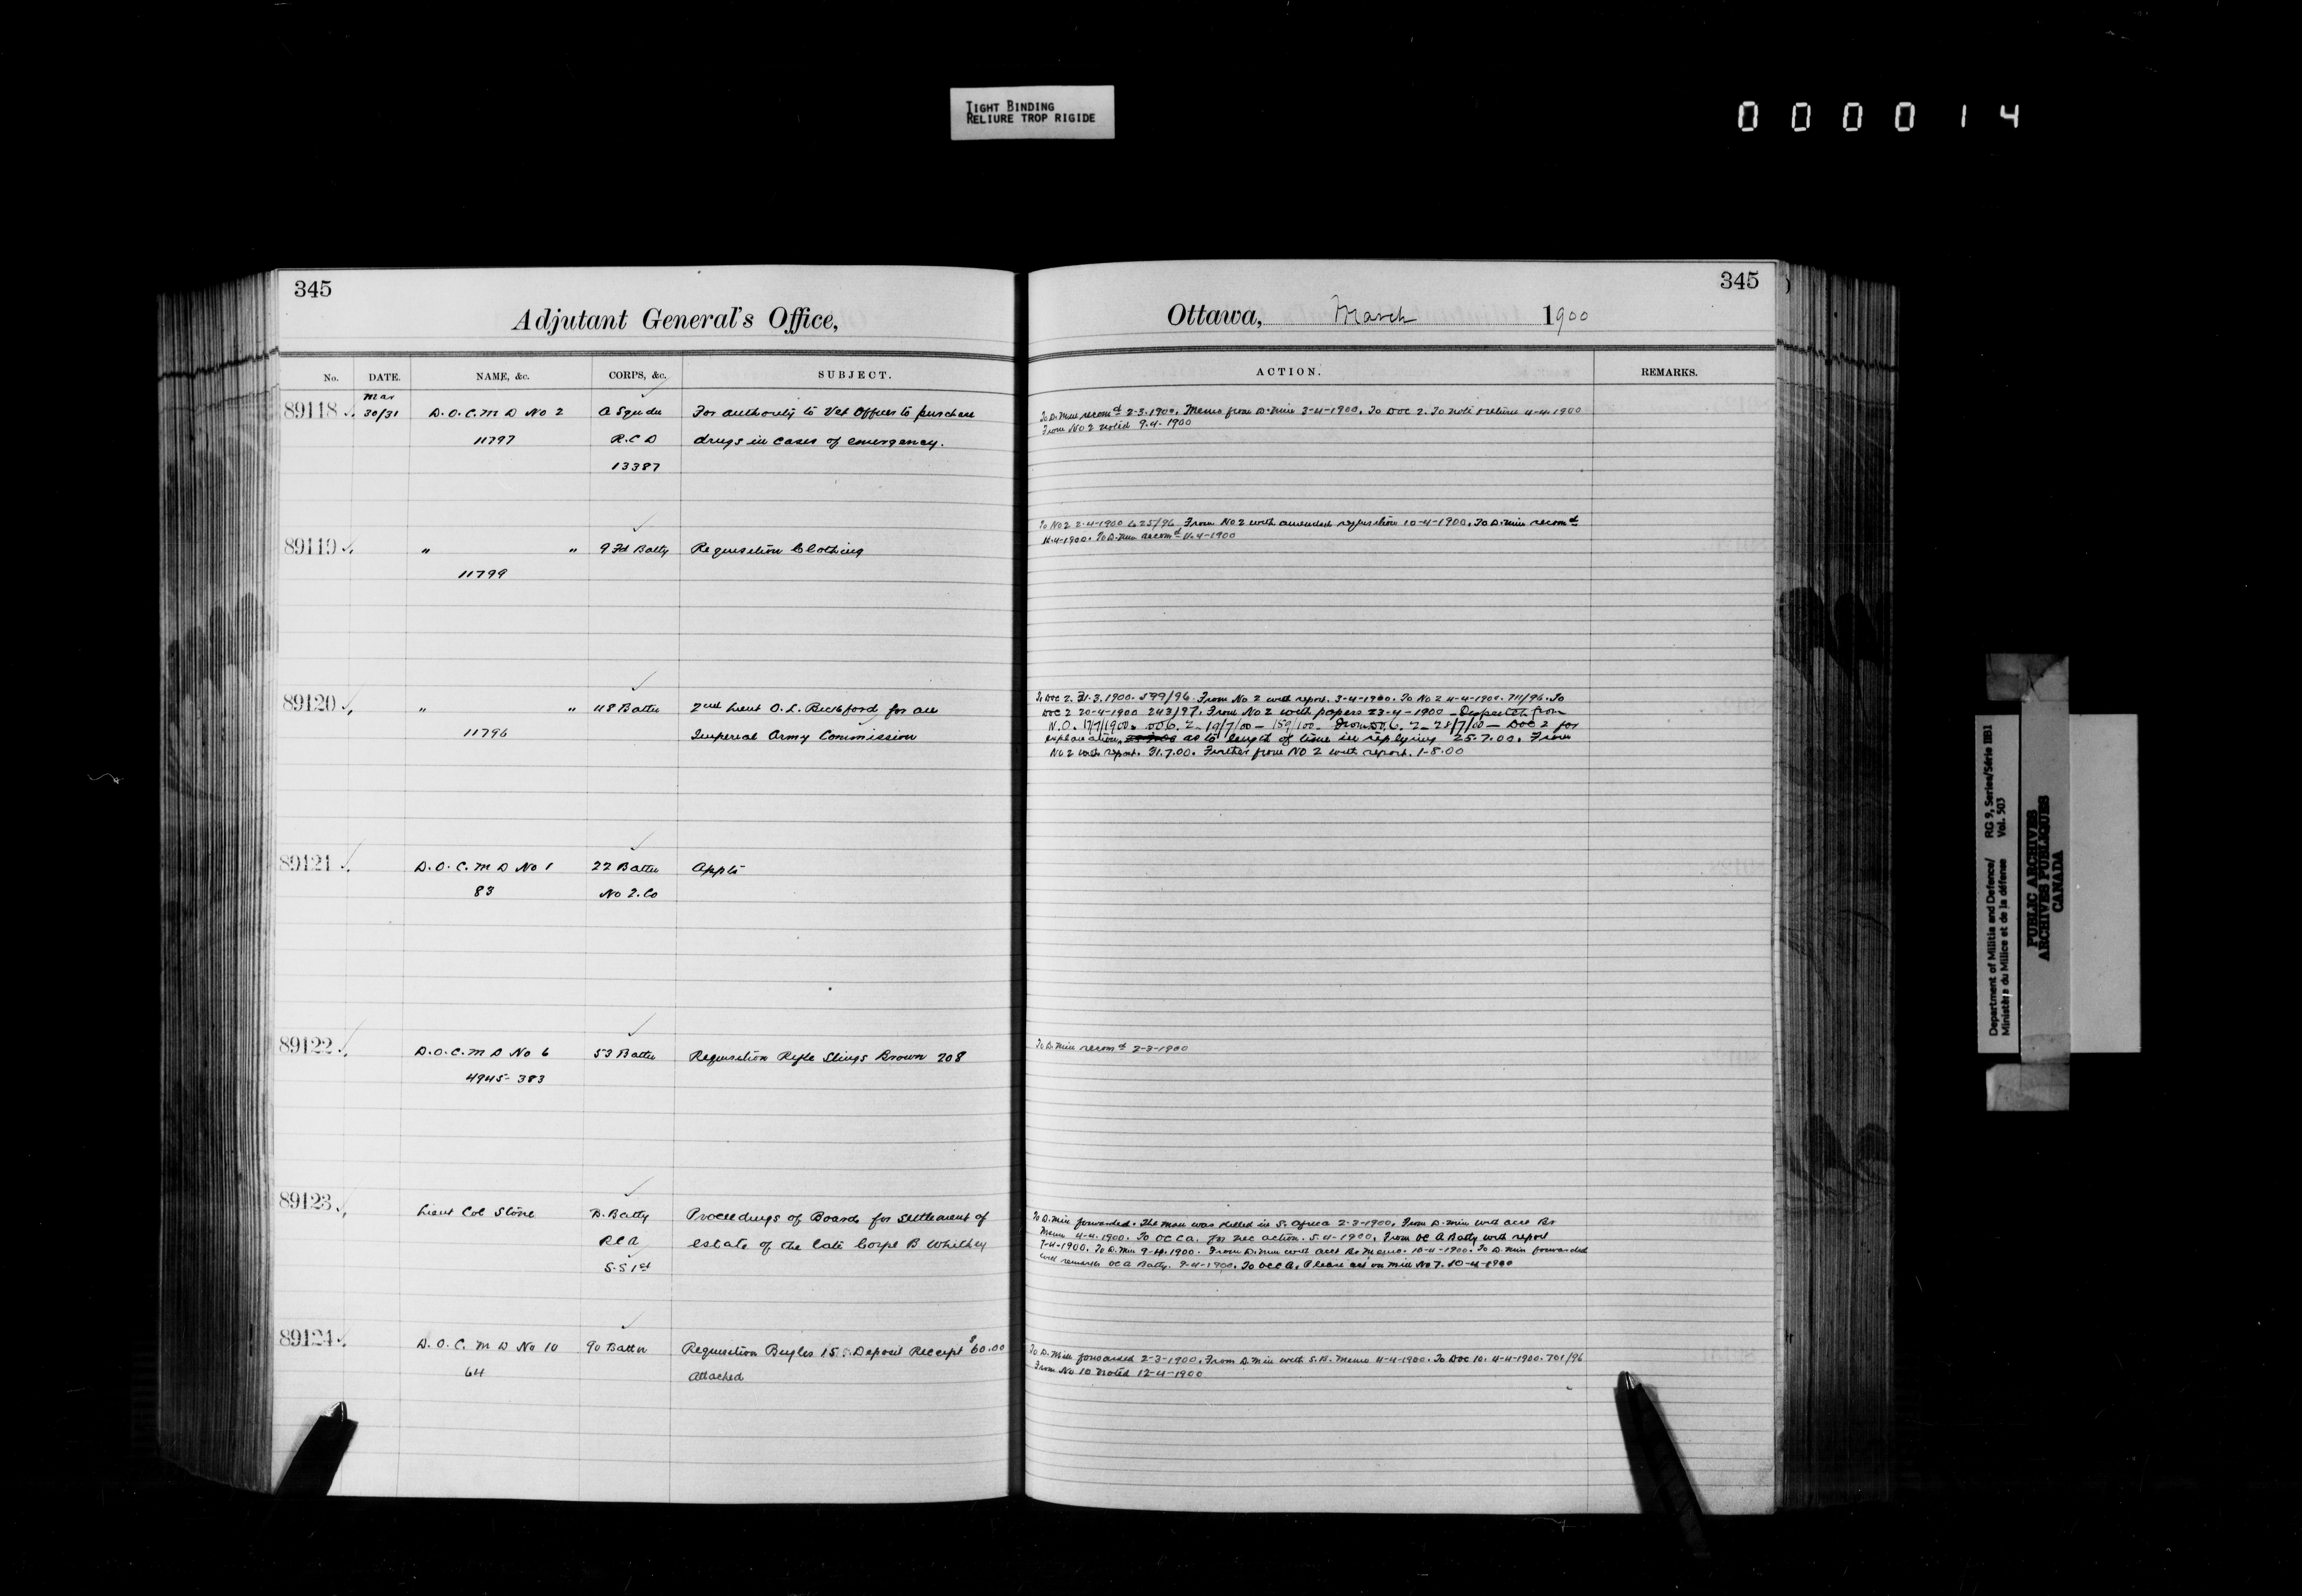 TIGHT BINDING
RELIURE TROP RIGIDE
000014
345
Adjutant General's Office,
No. DATE. NAME, &c. CORPS, &c. SUBJECT.
Mar
89118 30/31 D.O.C. M D No 2 A Sqdn For authority to Vet Officer to purchase
11797 R.C D drugs in cases of emergency.
13387
89119 " " 9 Fd Batty Requisition Clothing
11799
89120 " " 48 Battn 2nd Lieut O. L. for an
11796 Imperial Army Commission
89121 D.O.C. M D No 1 22 Battn Appts
83 No 2. Co
89122 D.O.C. M D No 6 53 Battn Requisition Rifle Slings Brown 208
4945-383
89123 Lieut Col Stone D. Batty Proceedings of Board for settlement of
RCA estate of the late Corpl B Whitley
S.S 1st
89124 D.O.C. M D No 10 90 Battn Requisition Bugles 15. Deposit Receipt $60.00
64 Attached
345
Ottawa, March 1900
ACTION. REMARKS.
To D. Min recomd 2-3-1900. Memo from D. Min 3-4-1900. To DOC 2. To note & return 4-4-1900
From No 2 noted 9.4.1900
To No 2 2-4-1900 625/96 From No 2 with amended requisition 10-4-1900. To D. Min recomd
11-4-1900. To D. Min recomd 11.4-1900
To DOC 2. 31.3.1900. 599/96. From No 2 with report. 3-4-1900. To No 2 4-4-1900. 711/96. To
DOC 2 20-4-1900 243/97. From No 2 with papers 23-4-1900 - Despatch from
17/7/1900. 2 - 19/7/00 - 159/100. From 2 - 28/7/00 - DOC 2 for
explanation as to length of time in replying 25.7.00. From
No 2 with report. 31.7.00. Further from No 2 with report. 1-8-00
To D. Min recomd 2-3-1900
To D. Min forwarded. The man was killed in S. Africa 2-3-1900. From D. Min with acct Br
Memo 4-4-1900. To OCCA. for nec action. 5.4-1900. From OC A Batty with report
7-4-1900. To D. Min 9-4-1900. From D. Min with acct Br Memo. 10-4-1900. To D. Min forwarded
with remarks OC A Batty. 9-4-1900. To OCCA. Please act on Min No 7. 10-4-1900
To D. Min forwarded 2-3-1900. From D. Min with S.B. Memo 4-4-1900. To DOC 10. 4-4-1900. 701/96
From No 10 noted 12-4-1900
Department of Militia and Defence/ RG 9, Series/Série IIB1
Ministère du Milice et de la défense Vol. 503
PUBLIC ARCHIVES
ARCHIVES PUBLIQUES
CANADA